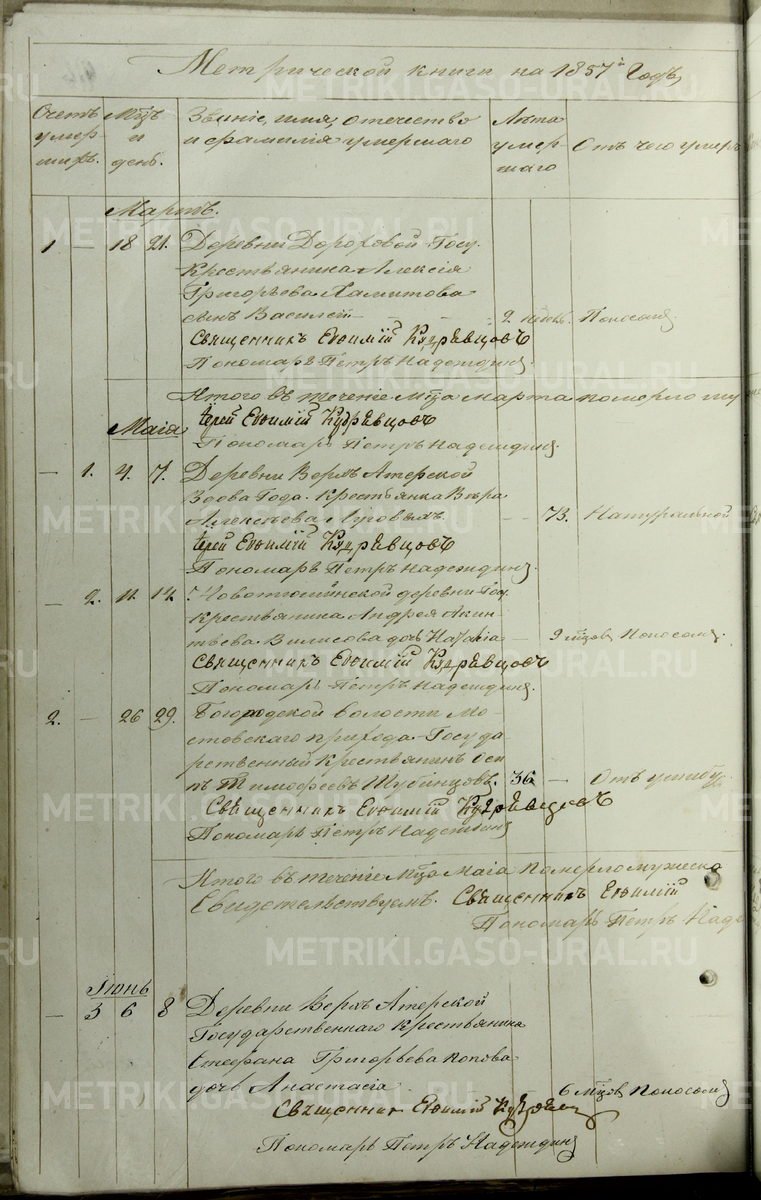 Метрической книги на 1857й Годъ,
Счетъ умер- шихъ.
Мцъ и день.
Званіе, имя, отечество
и фамилія умершаго
Лѣта умер- шаго
Отъ чего умеръ
Мартъ.
1 — 18 21. Деревни Дороховой Госу.
Крестьянина Алексія
Григорьева Хамитова
сынъ Василій — 2 Поносомъ.
Священникъ Евѳимій Кудрявцовъ
Пономарь Петръ Надеждинъ.
Итого въ теченіе Мца марта померло
Іерей Евѳимій Кудрявцовъ
Маія
Пономарь Петръ Надеждинъ.
— 1. 4. 7. Деревни Верхъ Атерской
Года. Крестьянка Вѣра
Алексѣева — 73. Натуральной
Іерей Евѳимій Кудрявцовъ
Пономарь Петръ Надеждинъ.
— 2. 11. 14. деревни Гос.
крестьянина Андрея Акин-
тьева Вилисова дочь Наталія — 9 мцовъ Поносомъ.
Священникъ Евѳимій Кудрявцовъ
Пономарь Петръ Надеждинъ.
2. — 26 29. Богородской волости Мо-
стовскаго прихода Госуда-
рственный Крестьянинъ Оси-
пъ Тимофеевъ Шубинцовъ. 36 — Отъ ушибу.
Священникъ Евѳимій Кудрявцовъ
Пономарь Петръ Надеждинъ
Итого въ теченіе Мца маія померло мужеска
Свидетельствуемъ. Священникъ Евѳимій
Пономарь Петръ Надеж
Іюнь
— 3 6 8 Деревни Верхъ Атерской
Государственнаго крестьянина
Стефана Григорьева Попова
дочь Анастасія 6 мцовъ Поносомъ
Священникъ Евѳимій Кудрявцовъ
Пономарь Петръ Надеждинъ
METRIKI.GASO-URAL.RU